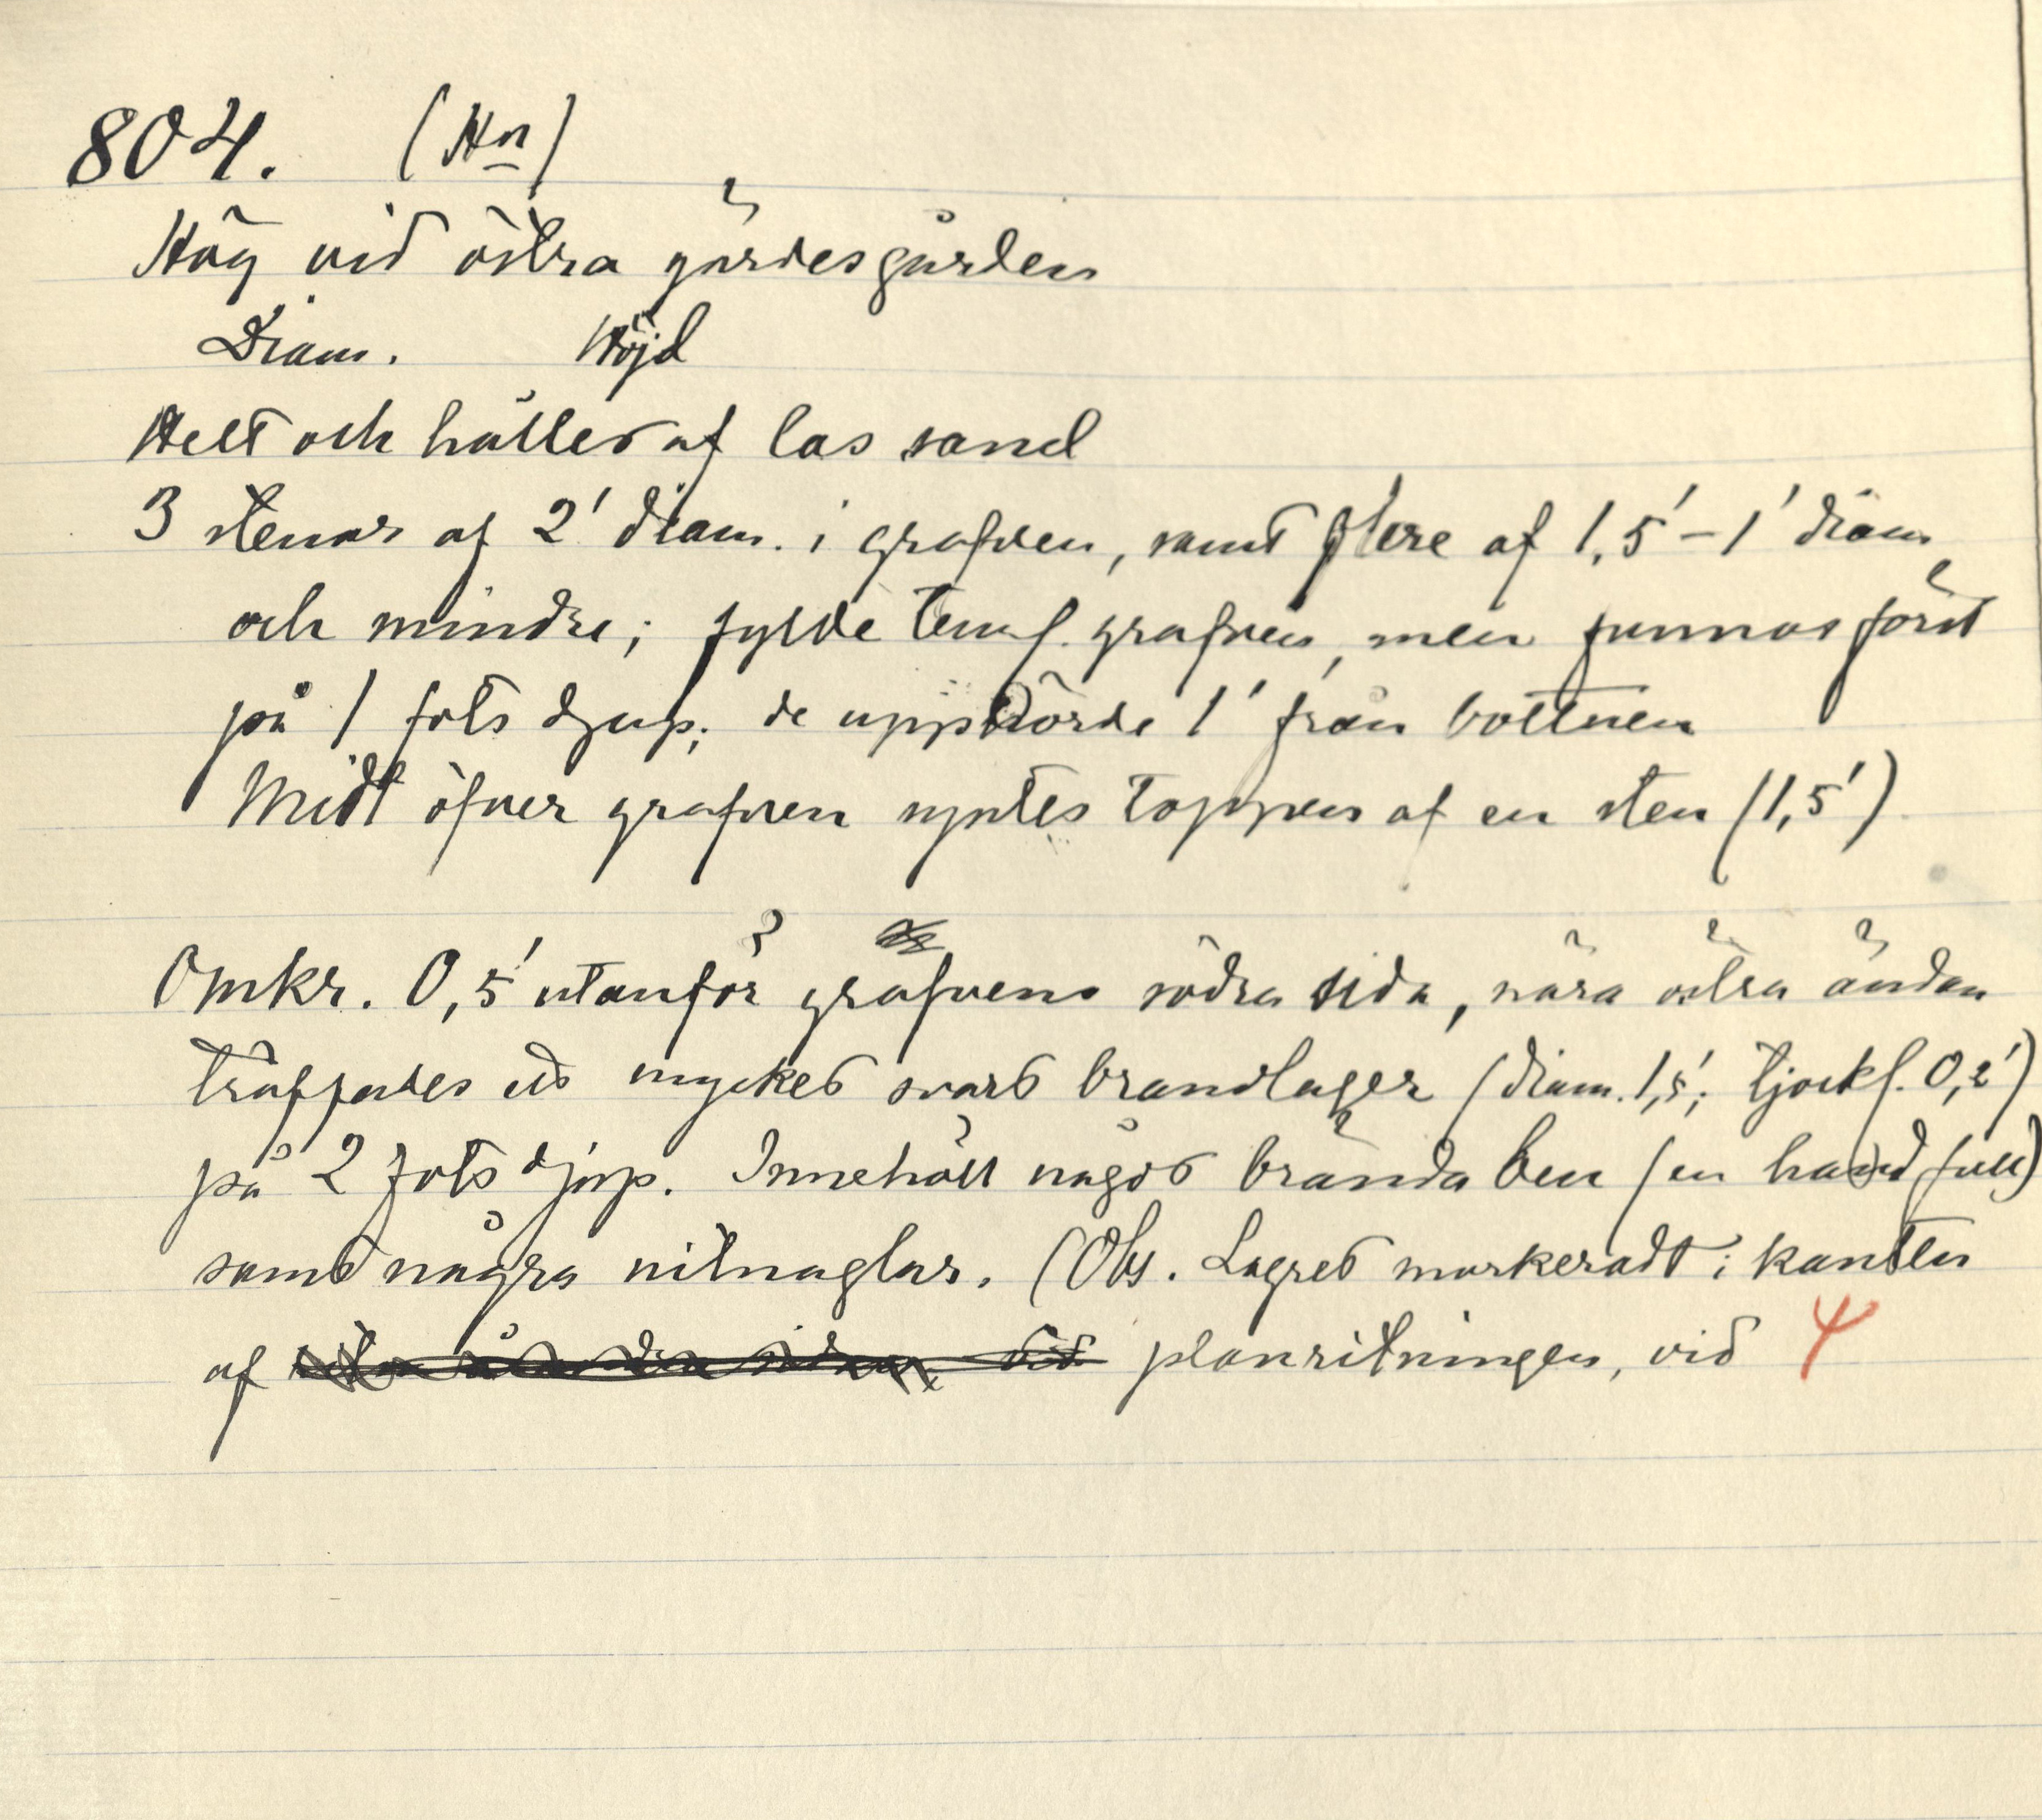 804. (Hn)
Hög vid östra gärdesgården
Diam. Höjd
Helt och hållet af lös sand
3 stenar af 2' diam. i grafven, samt flere af 1,5'–1' diam
och mindre; fylde teml. grafven, men funnos först
på 1 fots djup; de upphörde 1' från bottnen
Midt öfver grafven syntes toppen af en sten (1,5')
Omkr. 0,5' utanför grafvens södra sida, nära östra ändan
träffades ett mycket svart brandlager (diam. 1,5'; tjockl. 0,2')
på 2 fots djup. Innehöll något brända ben (en hand full)
samt några nitnaglar. (Obs. Lagret markeradt i kanten
af planritningen, vid